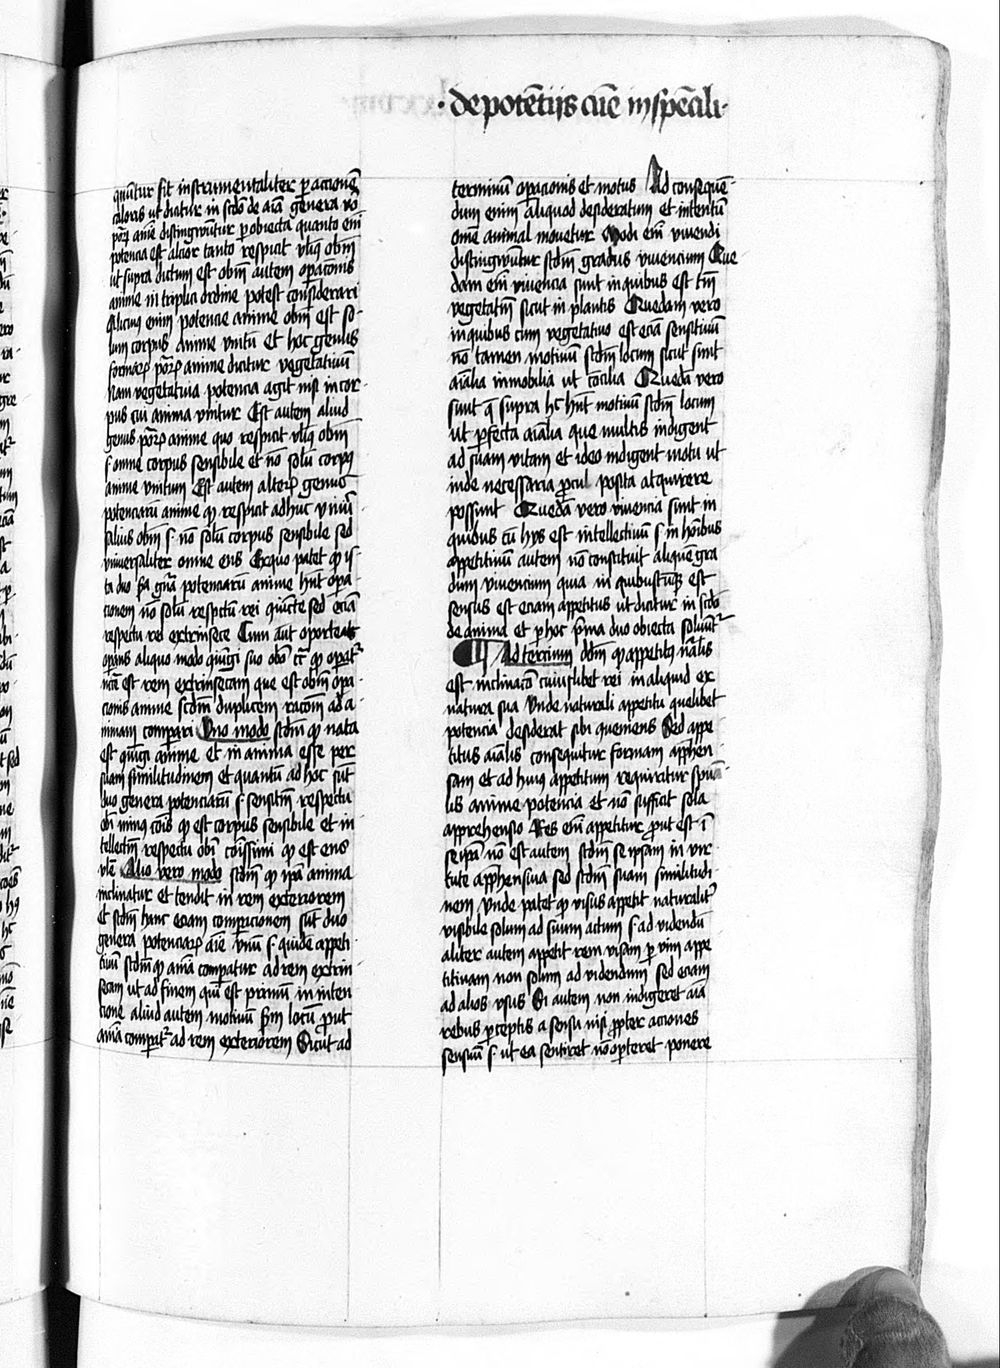 · de potētijs aīe in spēali ·
quūtur fit instrumentaliter p actionē
caloris ut dicitur in scdo de aīa genera vo
potar anīe distingwūtur p obiecta quanto eni
potencia est alcior tanto respicit vlīq obm
ut supra dictum est obm autem opacōnis
anime in triplici ordine potest considerari
Alicui enim potencie anime obm est so-
lum corpus anime vnitū Et hoc genus
formar potar anime dicitur vegetatiuū
Nam vegetatiua potencia agit nisi in cor-
pus cui anima vnitur Est autem aliud
genus potar anime quo respicit vlīq obm
s· omne corpus sensibile et nō solū corpq
anime vnitum Est autem alter genus
potenciarū anime qp respicit adhuc vniu
salius obm s· nō solū corpus sensibile sed
vniuersaliter omne ens Ex quo patet qp is
ta duo pa gna potenciarū anime hnt opa
cionem nō solū respctu rei qiūcte sed eciā
respectu rei extrinsece Cum aūt oporteat
opans aliquo modo qiūgi suo obo ct qp opat
ncē est rem extrinsecam que est obm opa
cionis anime scdm duplicem racōm ad a
nimam compari Vno modo scdm qp nata
est qiūgi anime et in anima esse per
suam similitudinem et quantū ad hoc sūt
duo genera potenciarū s· sensitm respectu
obi minq cōis qp est corpus sensibile et in
tellectm respectu obi cōissimi qp est ens
vle Alio vero modo scdm qp ipa anima
inclinatur et tendit in rem exteriorem
Et scdm hanc eciam compacionem sūt duo
genera potenciar aīe vnū s· quidē appeti
tiuū scdm qp aīma compatur ad rem extrin
secam ut ad finem qui est primū in inten
cione aliud autem motiuū scdm locū put
anīa compat ad rem exteriorem Sicut ad
terminū opacionis et motus Ad consequē
dum enim aliquod desideratum et intentū
omē animal mouetur Modi eni viuendi
distingwūtur scdm gradus viuencium Que
dam eni viuencia sunt in quibus est tm
vegetatm sicut in plantis Quedam vero
in quibus cum vegetatiuo est eciā sensitiuū
nō tamen motiuū scdm locum sicut sunt
aīalia inmobilia ut cōcilia Queda vero
sunt q supra hc hnt motiuū scdm locum
ut pfecta aīalia que multis indigent
ad suam vitam et ideo indigent motu ut
inde necessaria pcul posita atquirere
possunt Queda vero viuencia sunt in
quibus cū hys est intellectiuū s· in hoībus
appetitiuū autem nō constituit aliquē gra
dum viuencium quia in quibustūq est
sensus est eciam appetitus ut dicitur in scdo
de anima et p hoc pma duo obiecta soluūt
Ad tercium ddm qp appetitq nālis
est inclinacō cuiuslibet rei in aliquid ex
natura sua Vnde naturali appetitu quelibet
potencia desiderat sibi queniens Sed appe
titus aīalis consequitur formam apphen
sam et ad huiq appetitum requiritur spūa
lis anime potencia et nō sufficit sola
apprehensio Res eni appetitur put est ī
se ipa nō est autem scdm se ipsam in vir
tute apphensiua sed scdm suam similitudi
nem Vnde patet qp visus appetit naturalit
visibile solum ad suum actum s· ad videndū
aliter autem appetit rem visam p vim appe
titiuam non solum ad videndum sed eciam
ad alios vsus Si autem non indigeret aīa
rebus pceptis a sensu nisi ppter acciones
sensuū s· ut ea sentiret nō oporteret ponere